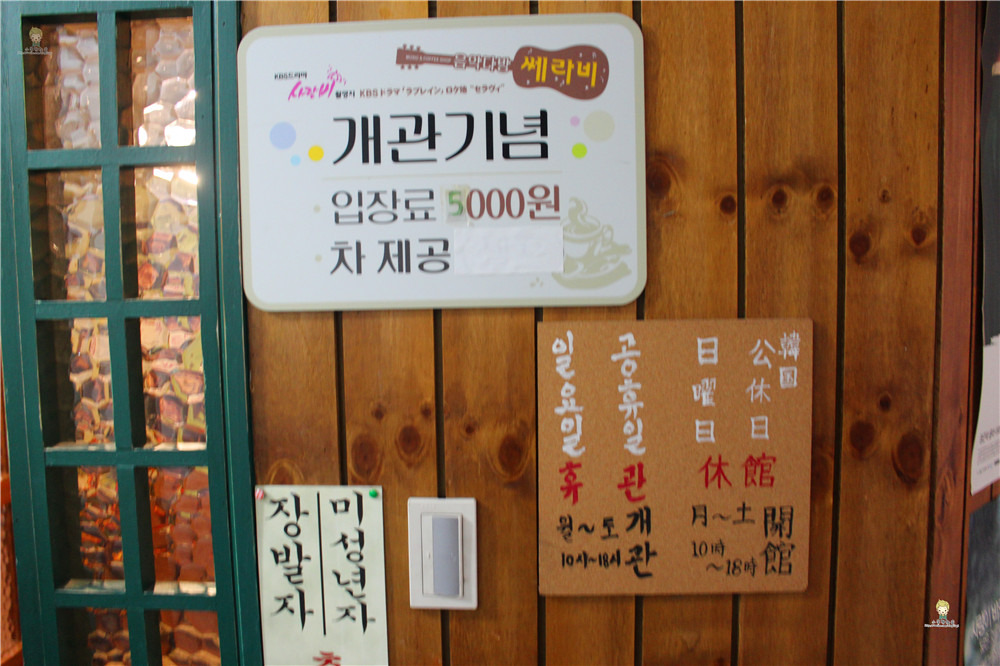 음악다방
쎄라비
KBS드라마
사랑비 촬영지 KBSドラマ「ラブレイン」ロケ地 "セラヴィ"
개관기념
입장료 5000원
차 제공
공휴일 휴관
일요일 휴관
월~토 개관
10시~18시
韓国
公休日
日曜日
休館
月~土
開館
10時
~18時
미성년자
장발자